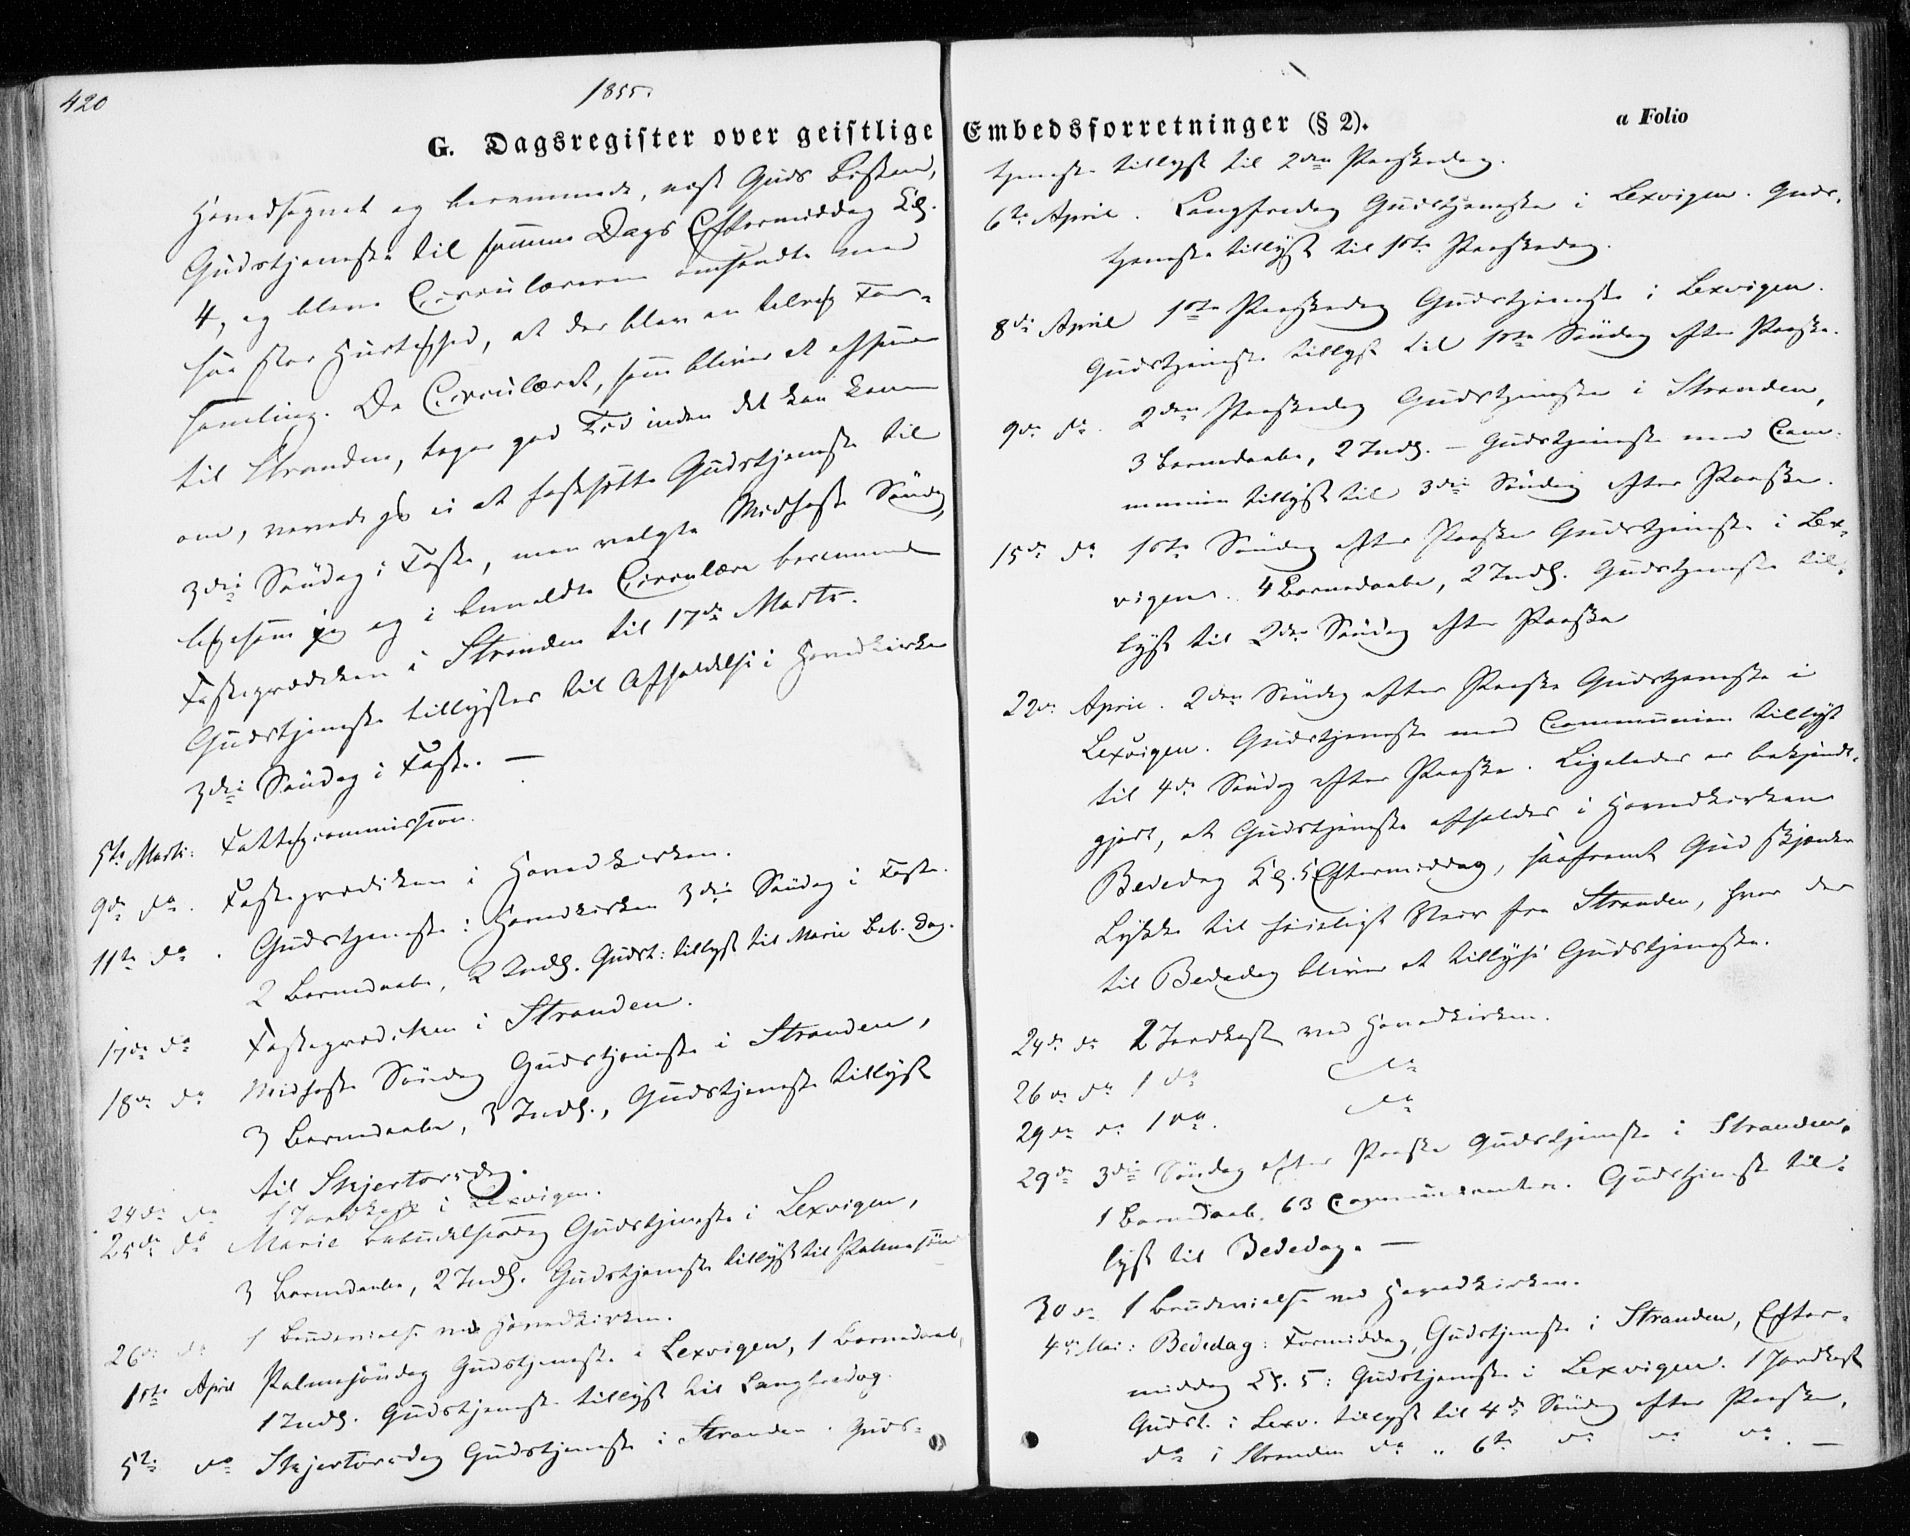 420
1855.
G. Dagsregister over geistlige
Hovedsognet og berammede, næst Guds Bistand,
Gudstjeneste til samme Dags Eftermiddag Kl.
4, og bleve Circulærerne omsendte med
saa stor Hurtighed, at der blev en talrig For-
samling. Da Circulæret, som bliver at afsende
til Stranden, tager god Tid inden det kan komme
om, vovede jeg ei at fastsætte Gudstjeneste til
3die Søndag i Faste, men valgte Midfaste Søndag,
ligesom jeg og i bemeldte Circulære berammede
Fasteprædiken i Stranden til 17de Marts.
Gudstjeneste tillystes til Afholdelse i Hovedkirken
3die Søndag i Faste. —
5te Marts: Fattigcommission.
9de do. Fasteprædiken i Hovedkirken.
11te do. Gudstjeneste i Hovedkirken 3die Søndag i Faste.
2 Barnedaabe, 2 Indl. Gudst: tillyst til Mariæ Beb. Dag.
17de do Fasteprædiken i Stranden.
18de do Midfaste Søndag Gudstjeneste i Stranden,
3 Barnedaabe, 3 Indl., Gudstjeneste tillyst
til Skjertorsdag.
24de do 1 Jordkast i Lexvigen.
25de do Mariæ Bebudelsesdag Gudstjeneste i Lexvigen,
3 Barnedaabe, 2 Indl. Gudstjeneste tillyst til Palmesøn
26de do 1 Brudevielse ved Hovedkirken.
1ste April Palmesøndag Gudstjeneste i Lexvigen, 1 Barnedaab,
1 Indl. Gudstjeneste tillyst til Langfredag.
5te do Skjertorsdag Gudstjeneste i Stranden. Guds-
Embedsforretninger (§ 2).
a Folio
tjeneste tillyst til 2den Paaskedag.
6te April. Langfredag Gudstjeneste i Lexvigen. Guds-
tjeneste tillyst til 1ste Paaskedag.
8de April 1ste Paaskedag Gudstjeneste i Lexvigen.
Gudstjeneste tillyst til 1ste Søndag efter Paaske.
9de do. 2den Paaskedag Gudstjeneste i Stranden,
3 Barnedaabe, 2 Indl. – Gudstjeneste med Com-
munion tillyst til 3die Søndag efter Paaske.
15de do 1ste Søndag efter Paaske Gudstjeneste i Lex-
vigen. 4 Barnedaabe, 2 Indl. Gudstjeneste til-
lyst til 2den Søndag efter Paaske
22de April. 2den Søndag efter Paaske Gudstjeneste i
Lexvigen. Gudstjeneste med Communion tillyst
til 4de Søndag efter Paaske. Ligeledes er bekjendt-
gjort, at Gudstjeneste afholdes i Hovedkirken
Bededag Kl. 5 Eftermiddag, saafremt Gud skjænker
Lykke til føieligt Veir fra Stranden, hvor der
til Bededag bliver at tillyse Gudstjeneste.
24de do 2 Jordkast ved Hovedkirken.
26de do 1 do do
29de do 1 do. do
29de 3die Søndag efter Paaske Gudstjeneste i Stranden,
1 Barnedaab. 63 Communicanter. Gudstjeneste til-
lyst til Bededag. —
30de 1 Brudevielse ved Hovedkirken.
4de Mai: Bededag: Formiddag Gudstjeneste i Stranden, Efter-
middag Kl. 5: Gudstjeneste i Lexvigen. 1 Jordkast
Gudst. i Lexv. tillyst til 4de Søndag efter Paaske,
do i Stranden do " 6te do do do. —